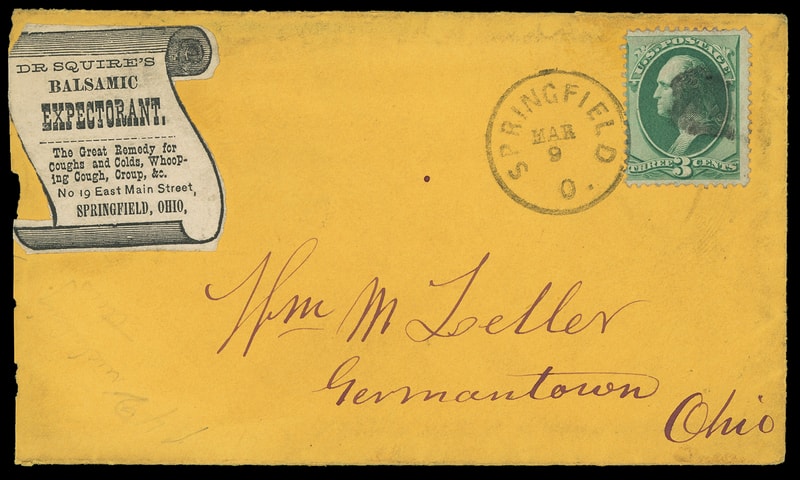 DR SQUIRE'S
BALSAMIC
EXPECTORANT.
The Great Remedy for
Coughs and Colds, Whoop-
ing Cough, Croup, &c.
No 19 East Main Street,
SPRINGFIELD, OHIO,
SPRINGFIELD O.
MAR
9
U.S. POSTAGE
THREE 3 CENTS
Wm M Zeller
Germantown
Ohio